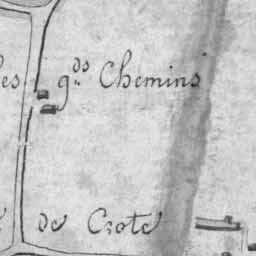 les g.ds Chemins
de Crote